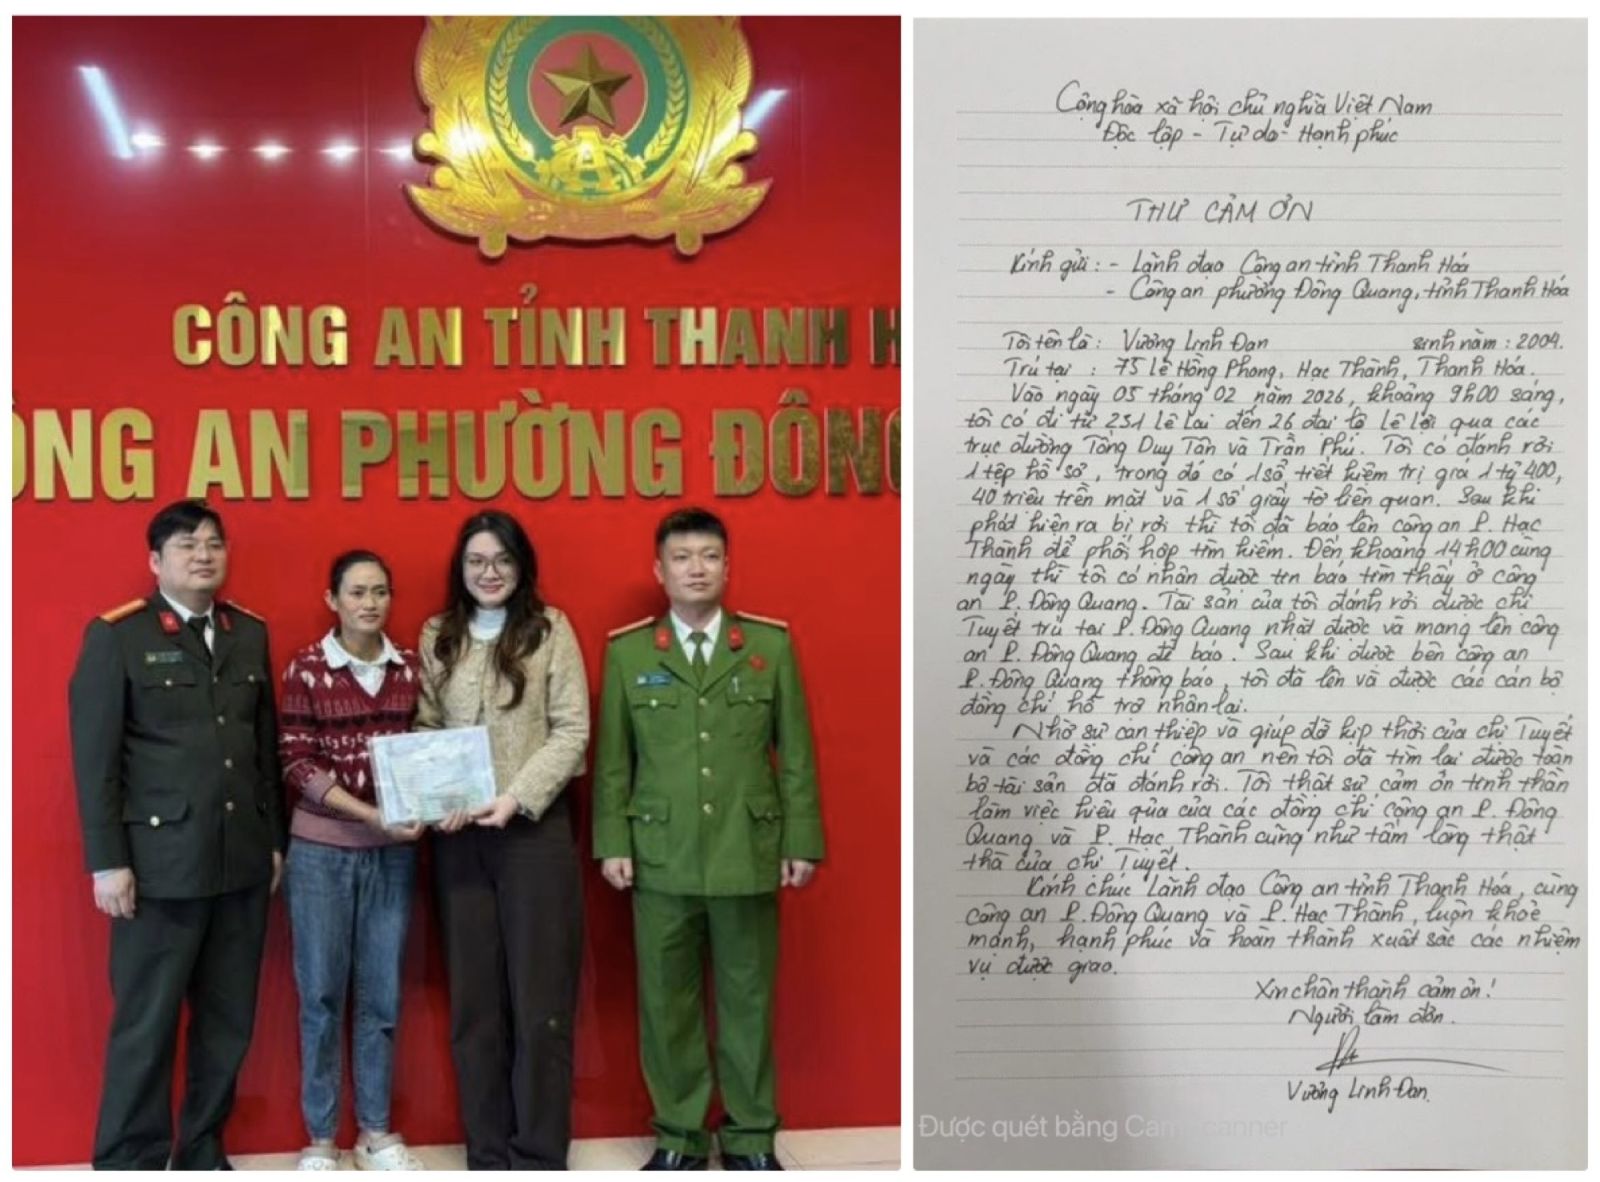 CÔNG AN TỈNH THANH H
ÔNG AN PHƯỜNG ĐÔNG
Cộng hòa xã hội chủ nghĩa Việt Nam
Độc lập - Tự do - Hạnh phúc
THƯ CẢM ƠN
Kính gửi : - Lãnh đạo Công an tỉnh Thanh Hóa
- Công an phường Đông Quang, tỉnh Thanh Hóa
Tôi tên là : Vương Linh Đan sinh năm : 2004.
Trú tại : 75 Lê Hồng Phong, Hạc Thành, Thanh Hóa.
Vào ngày 05 tháng 02 năm 2026, khoảng 9h00 sáng,
tôi có đi từ 251 Lê Lai đến 26 đại lộ Lê Lợi qua các
trục đường Tống Duy Tân và Trần Phú. Tôi có đánh rơi
1 tệp hồ sơ, trong đó có 1 sổ tiết kiệm trị giá 1 tỷ 400,
40 triệu tiền mặt và 1 số giấy tờ liên quan. Sau khi
phát hiện ra bị rơi thì tôi đã báo lên công an P. Hạc
Thành để phối hợp tìm kiếm. Đến khoảng 14h00 cùng
ngày thì tôi có nhận được tin báo tìm thấy ở công
an P. Đông Quang. Tài sản của tôi đánh rơi được chị
Tuyết trú tại P. Đông Quang nhặt được và mang lên công
an P. Đông Quang để báo. Sau khi được bên công an
P. Đông Quang thông báo, tôi đã lên và được các cán bộ
đồng chí hỗ trợ nhận lại.
Nhờ sự can thiệp và giúp đỡ kịp thời của chị Tuyết
và các đồng chí công an nên tôi đã tìm lại được toàn
bộ tài sản đã đánh rơi. Tôi thật sự cảm ơn tinh thần
làm việc hiệu qủa của các đồng chí công an P. Đông
Quang và P. Hạc Thành cùng như tấm lòng thật
thà của chị Tuyết.
Kính chúc Lãnh đạo Công an tỉnh Thanh Hóa, cùng
công an P. Đông Quang và P. Hạc Thành, luôn khỏe
mạnh, hạnh phúc và hoàn thành xuất sắc các nhiệm
vụ được giao.
Xin chân thành cảm ơn !
Người làm đơn.
Vương Linh Đan.
Được quét bằng CamScanner